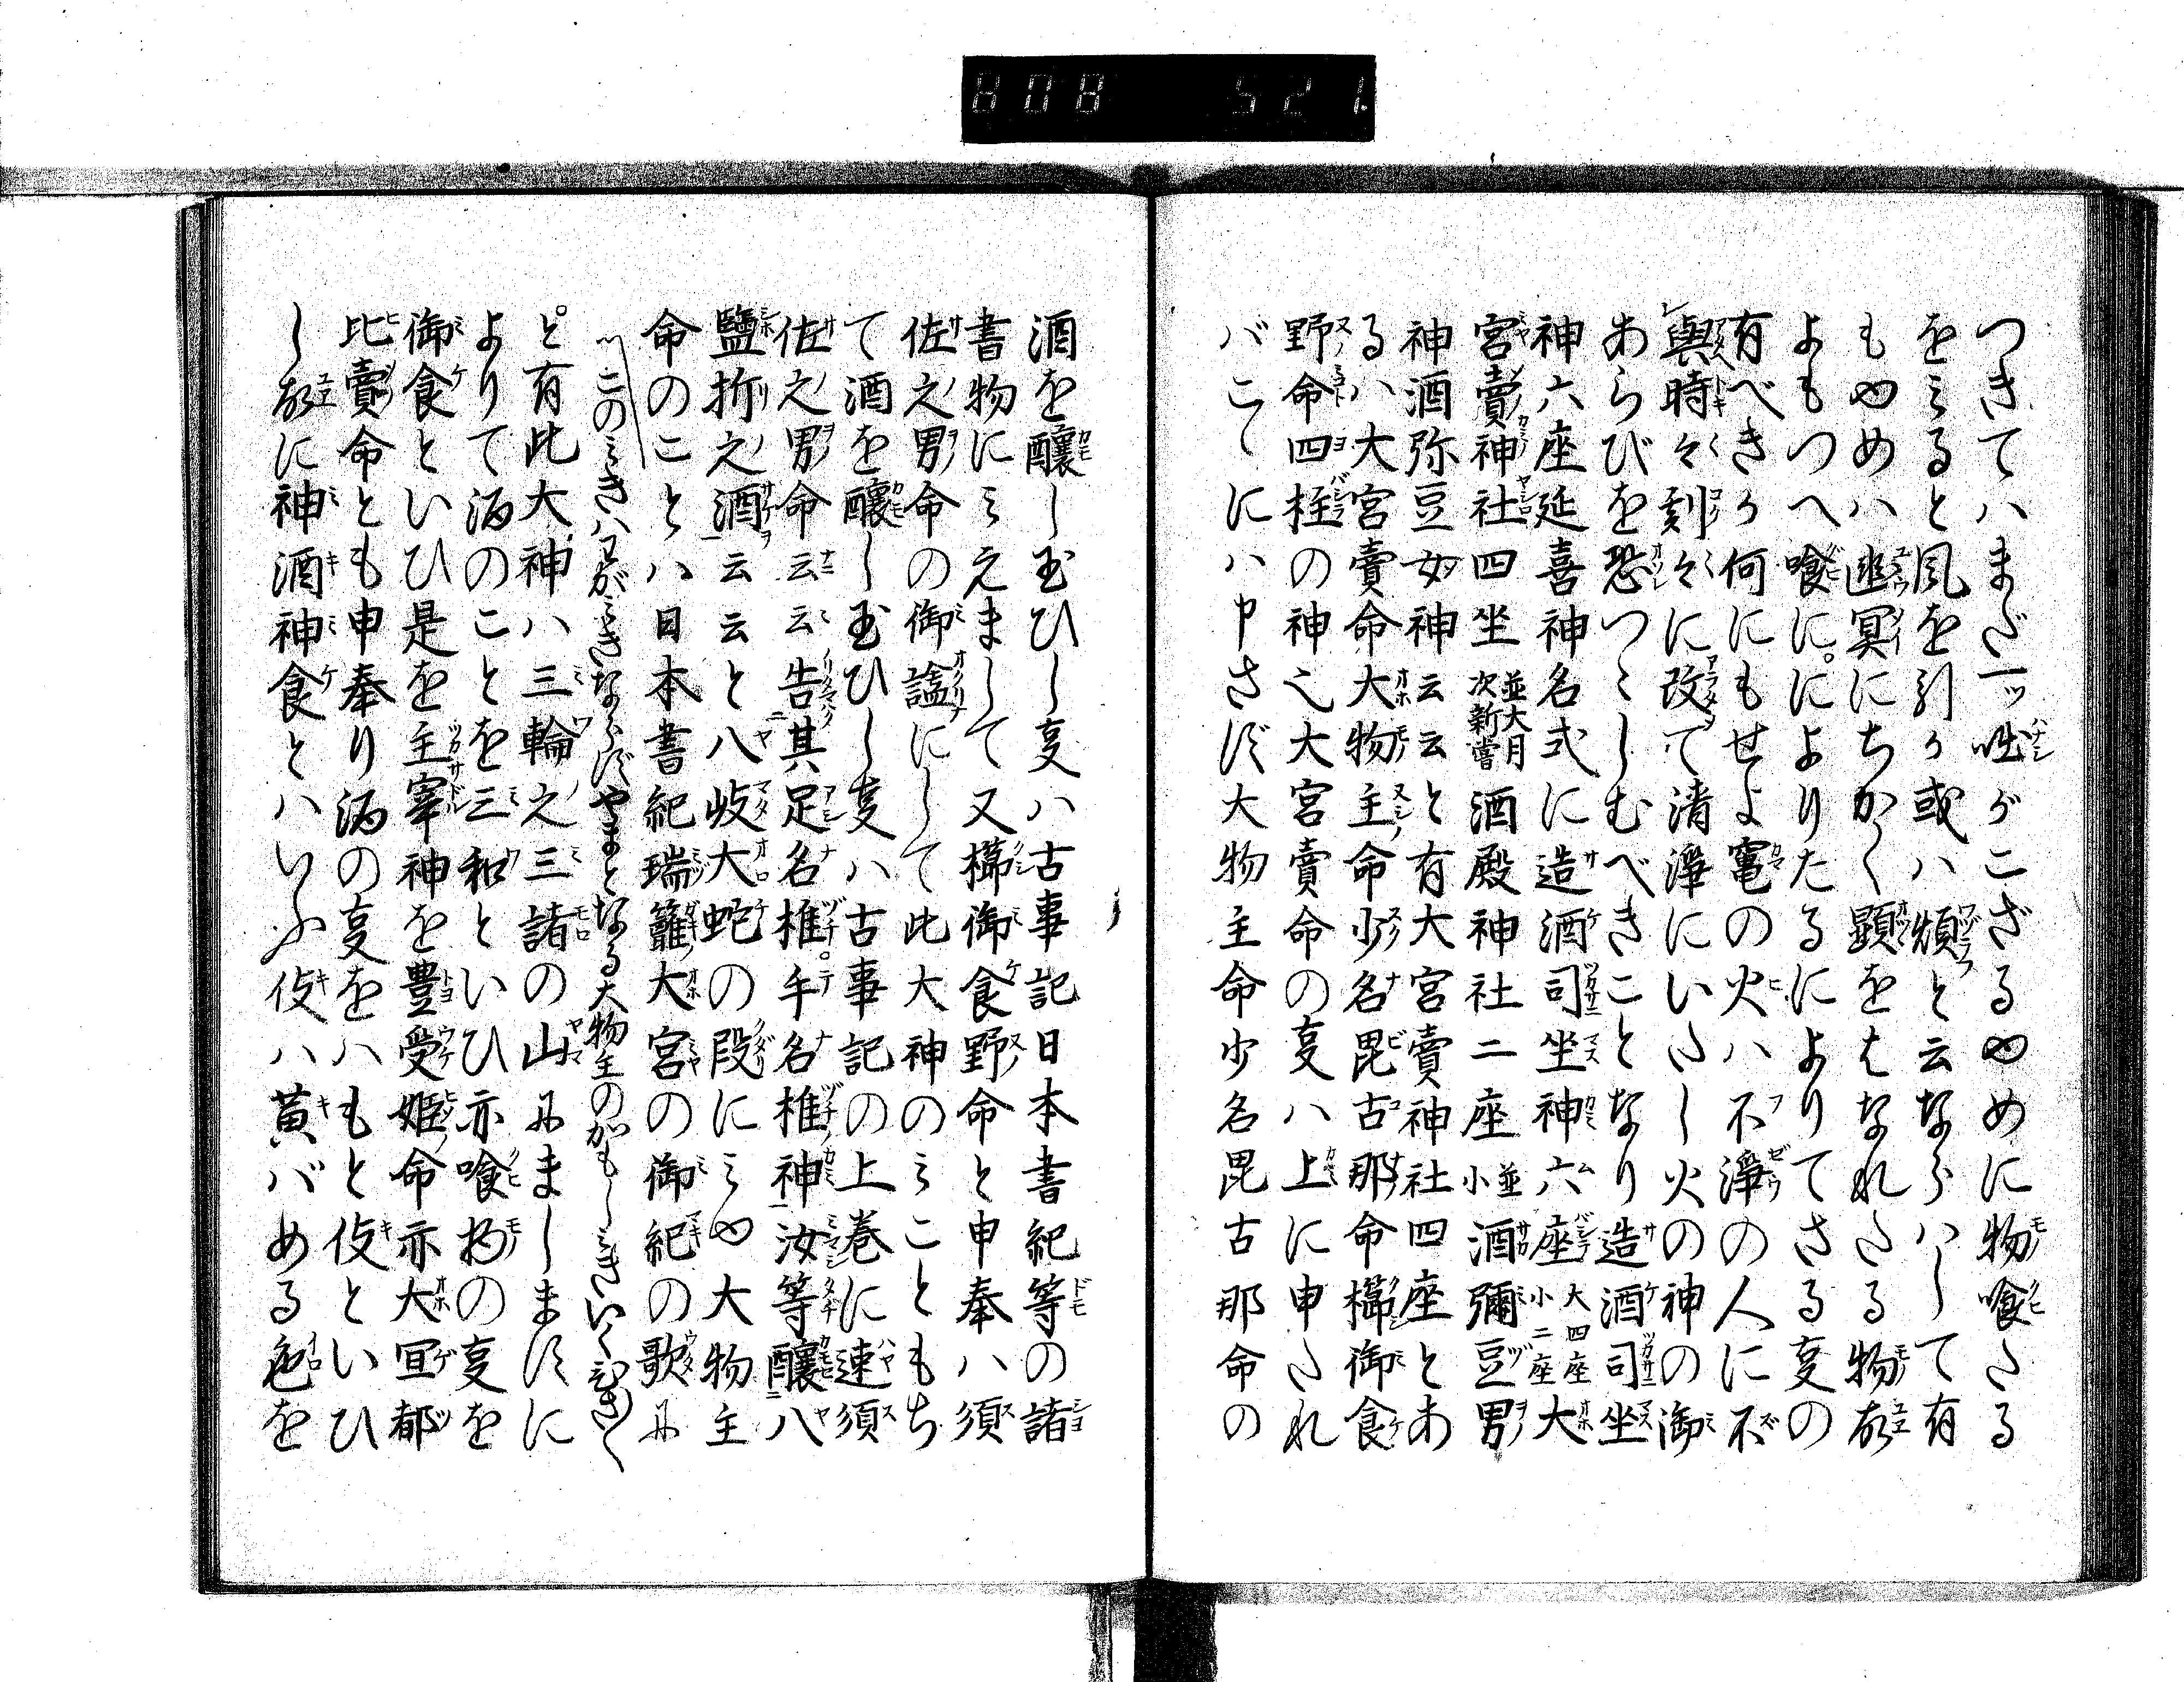 808 521
つきてハまだ一ッ咄がこざるやめに物喰たる
をみると風を引か或ハ煩と云ならハして有
もやめハ幽冥にちかく顕をはなれたる物故
よもつへ喰に。によりたるによりてさる㕝の
有べきか何にもせよ竃の火ハ不浄の人に不
與時々刻々に改て清浄にいたし火の神の御
あらびを恐つゝしむべきことなり造酒司坐
神六座延喜神名式に造酒司坐神六座大四座小二座大
宮賣神社四坐並大月次新嘗酒殿神社二座並小酒彌豆男
神酒弥豆女神云云と有大宮賣神社四座とあ
るハ大宮賣命大物主命少名毘古那命櫛御食
野命四柱の神也大宮賣命の㕝ハ上に申たれ
バこゝにハ申さず大物主命少名毘古那命の
酒を醸し玉ひし㕝ハ古事記日本書紀等の諸
書物にみえまして又櫛御食野命と申奉ハ須
佐之男命の御謚にして此大神のみこともち
て酒を醸し玉ひし㕝ハ古事記の上巻に速須
佐之男命云云告其足名椎手名椎神汝等醸八
鹽折之酒云云と八岐大蛇の段にみや大物主
命のことハ日本書紀瑞籬大宮の御紀の歌に
このみきハわがみきならずやまとなる大物主のかもしみきいくひさ〳〵
と有此大神ハ三輪之三諸の山にましますに
よりて酒のことを三和といひ亦喰物の㕝を
御食といひ是を主宰神を豊受姫命亦大宜都
比賣命とも申奉り酒の㕝をハもと伎といひ
し故に神酒神食とハいふ伎ハ黄バめる色を